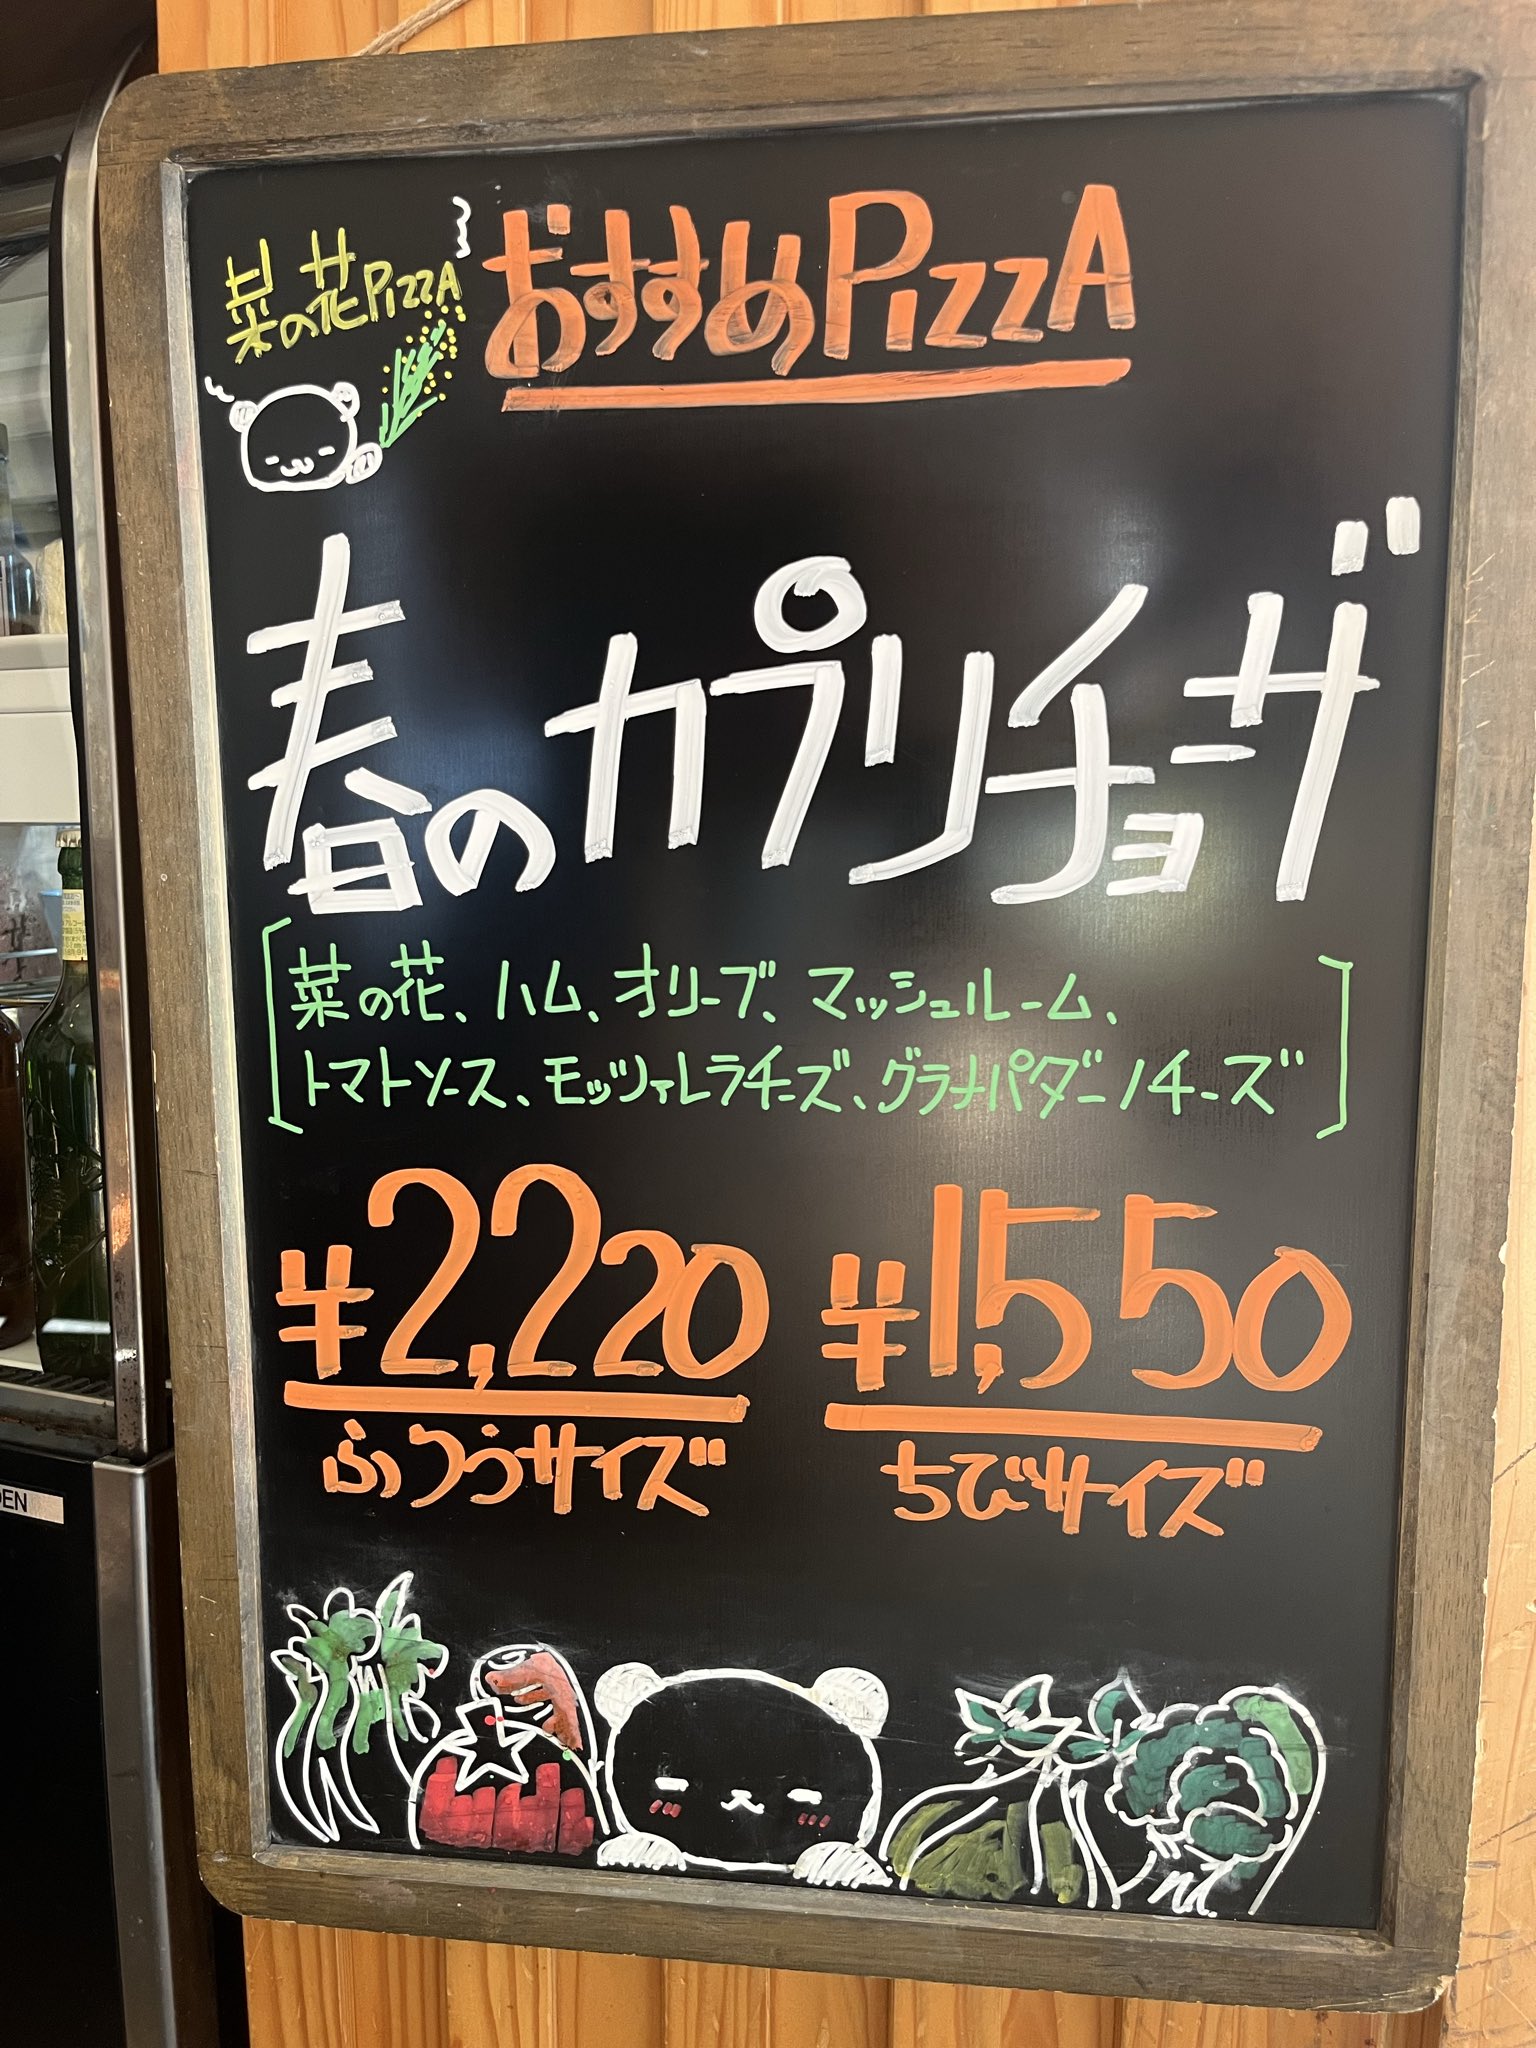 菜の花PizzA
おすすめPizzA
春のカプリチョーザ
[菜の花、ハム、オリーブ、マッシュルーム、
トマトソース、モッツァレラチーズ、グラナパダーノチーズ]
¥2,220 ¥1,550
ふつうサイズ ちびサイズ
DEN